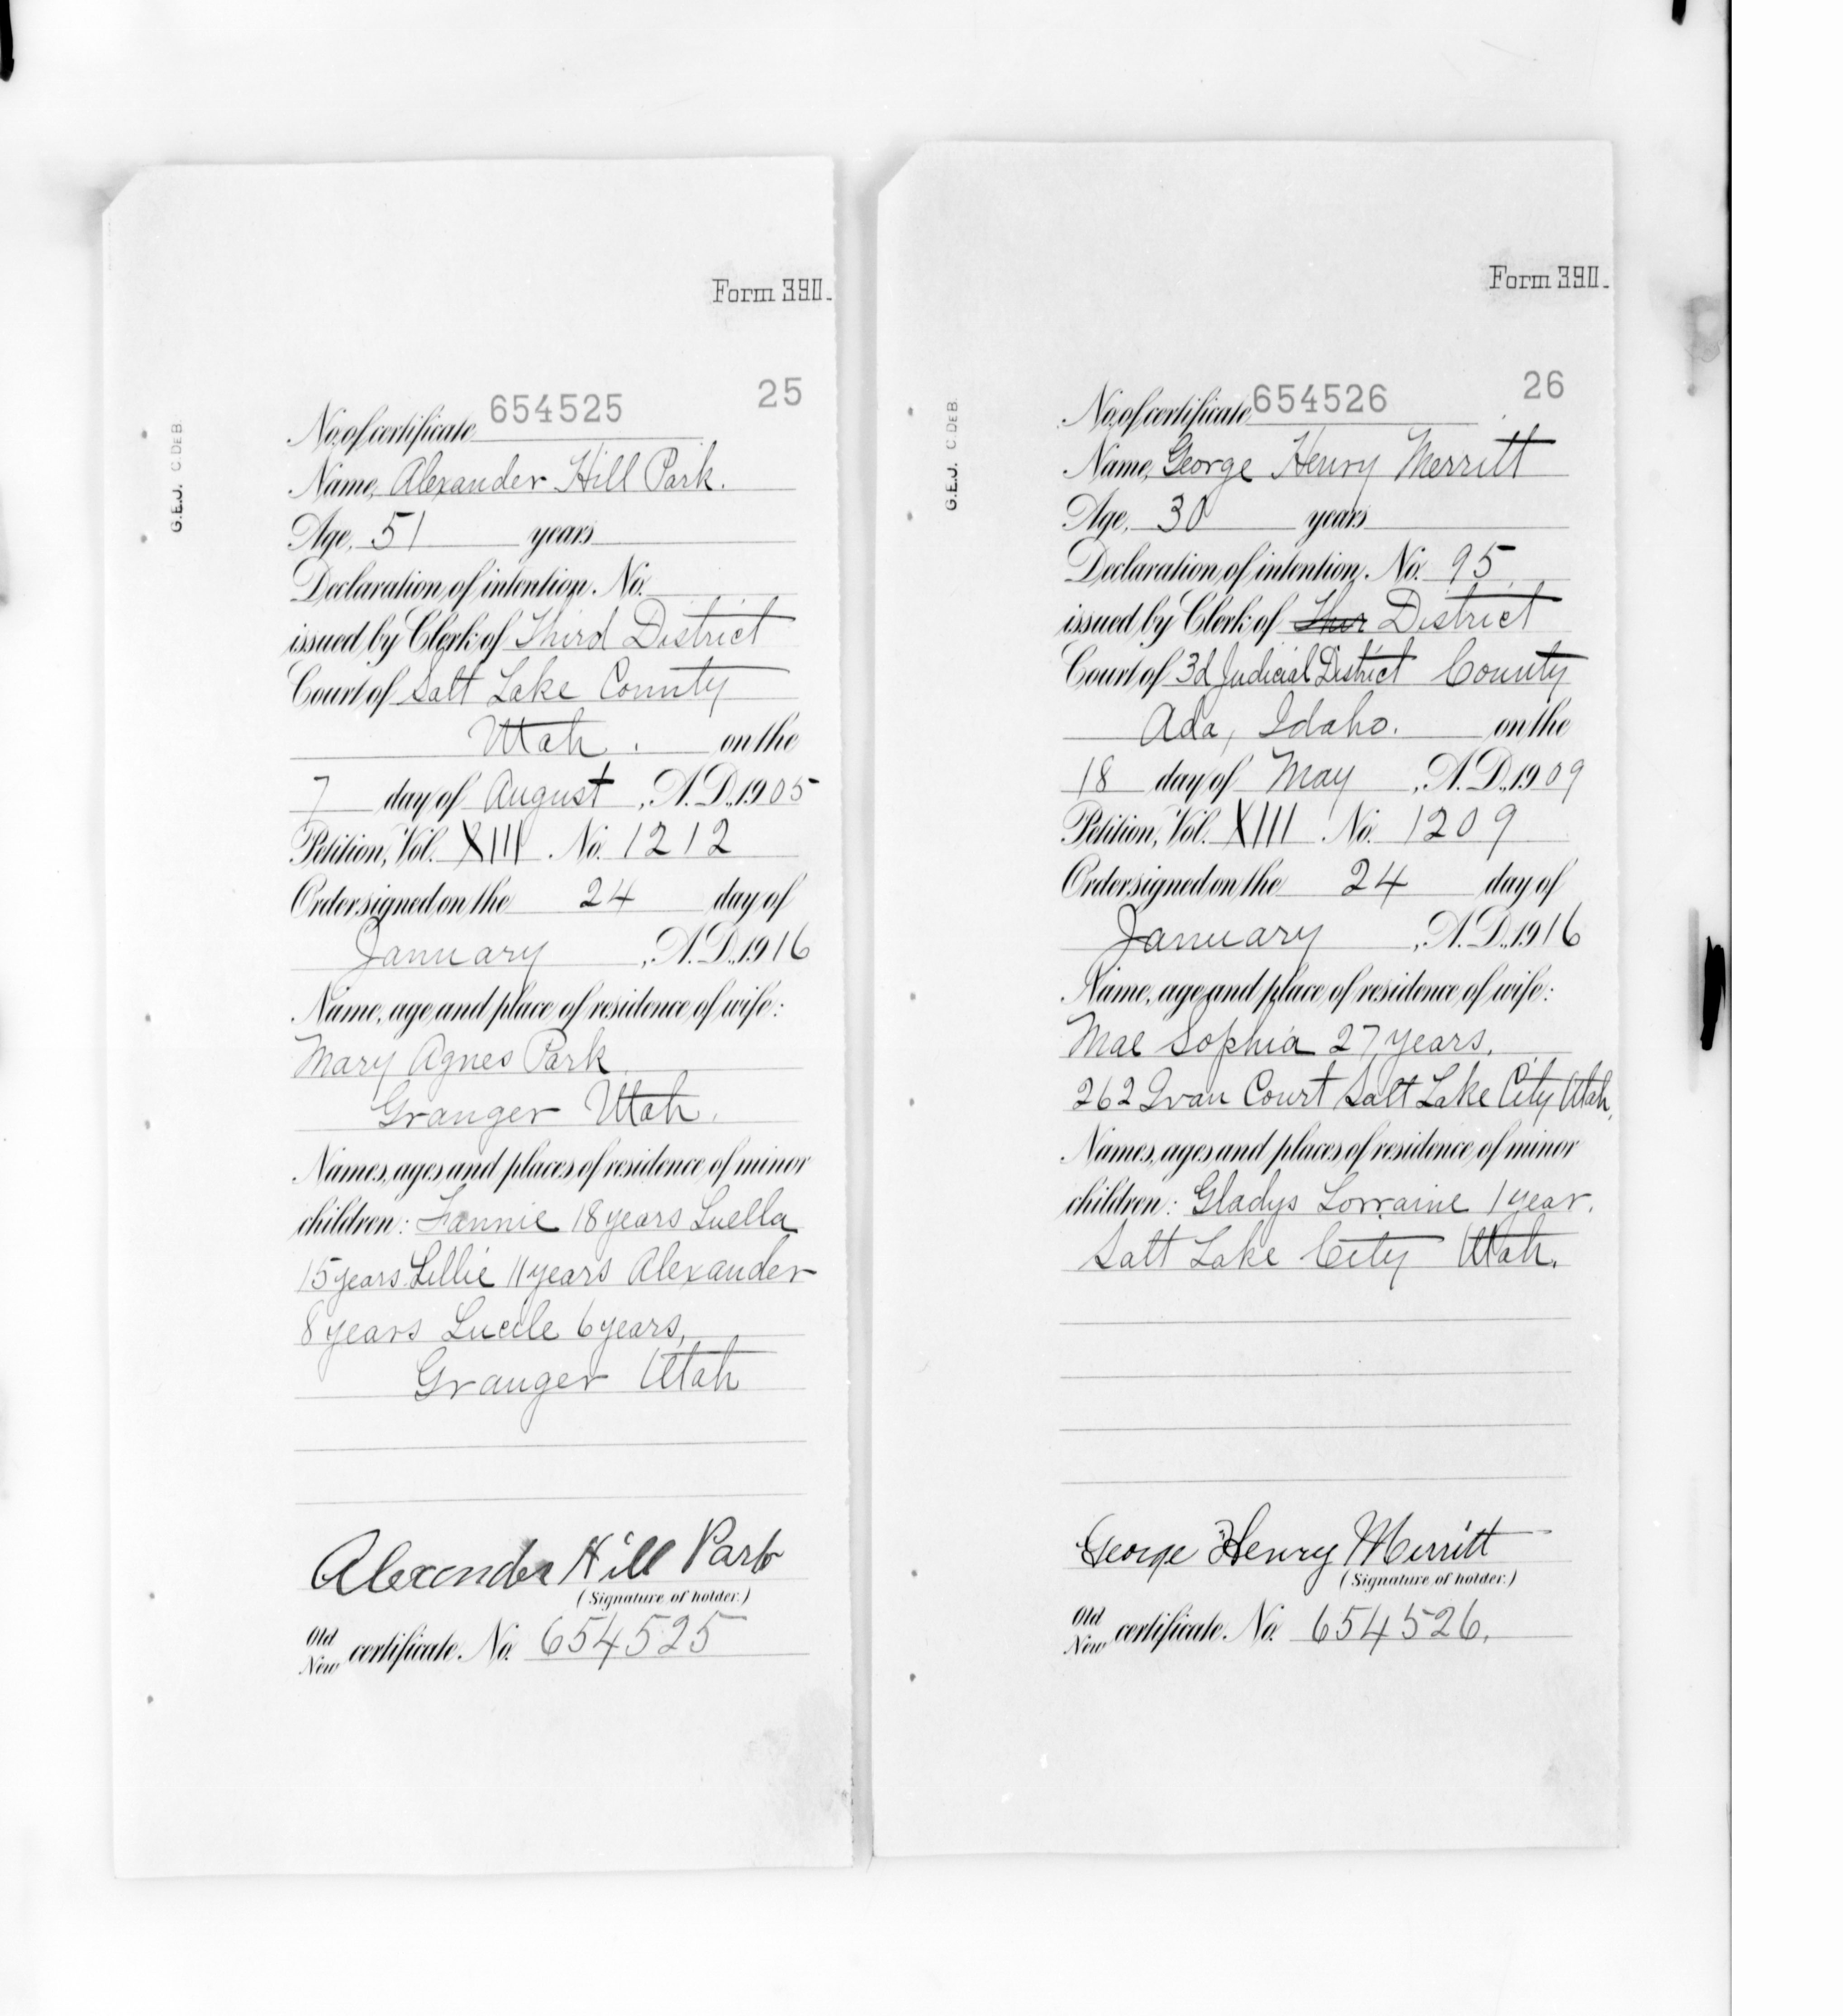 Form 390.
25
No. of certificate 654525
Name, Alexander Hill Park.
Age, 51 years
Declaration of intention, No.
issued by Clerk of Third District
Court of Salt Lake County
Utah. on the
7 day of August, A.D., 1905
Petition, Vol. XIII No. 1212
Order signed on the 24 day of
January, A.D., 1916
Name, age and place of residence of wife:
Mary Agnes Park
Granger Utah.
Names, ages and places of residence of minor
children: Fannie 18 years Luella
15 years Lillie 11 years Alexander
8 years Lucile 6 years,
Granger Utah
Alexander Hill Park
(Signature of holder.)
Old
New certificate No. 654525
G.E.J. C DEB.
Form 390.
26
No. of certificate 654526
Name, George Henry Merritt
Age, 30 years
Declaration of intention, No. 95
issued by Clerk of District
Court of 3d Judicial District County
Ada, Idaho. on the
18 day of May, A.D., 1909
Petition, Vol. XIII No. 1209
Order signed on the 24 day of
January, A.D., 1916
Name, age and place of residence of wife:
Mae Sophia 27 years.
262 Ivan Court Salt Lake City Utah,
Names, ages and places of residence of minor
children: Gladys Lorraine 1 year.
Salt Lake City Utah.
George Henry Merritt
(Signature of holder.)
Old
New certificate No. 654526.
G.E.J. C DEB.